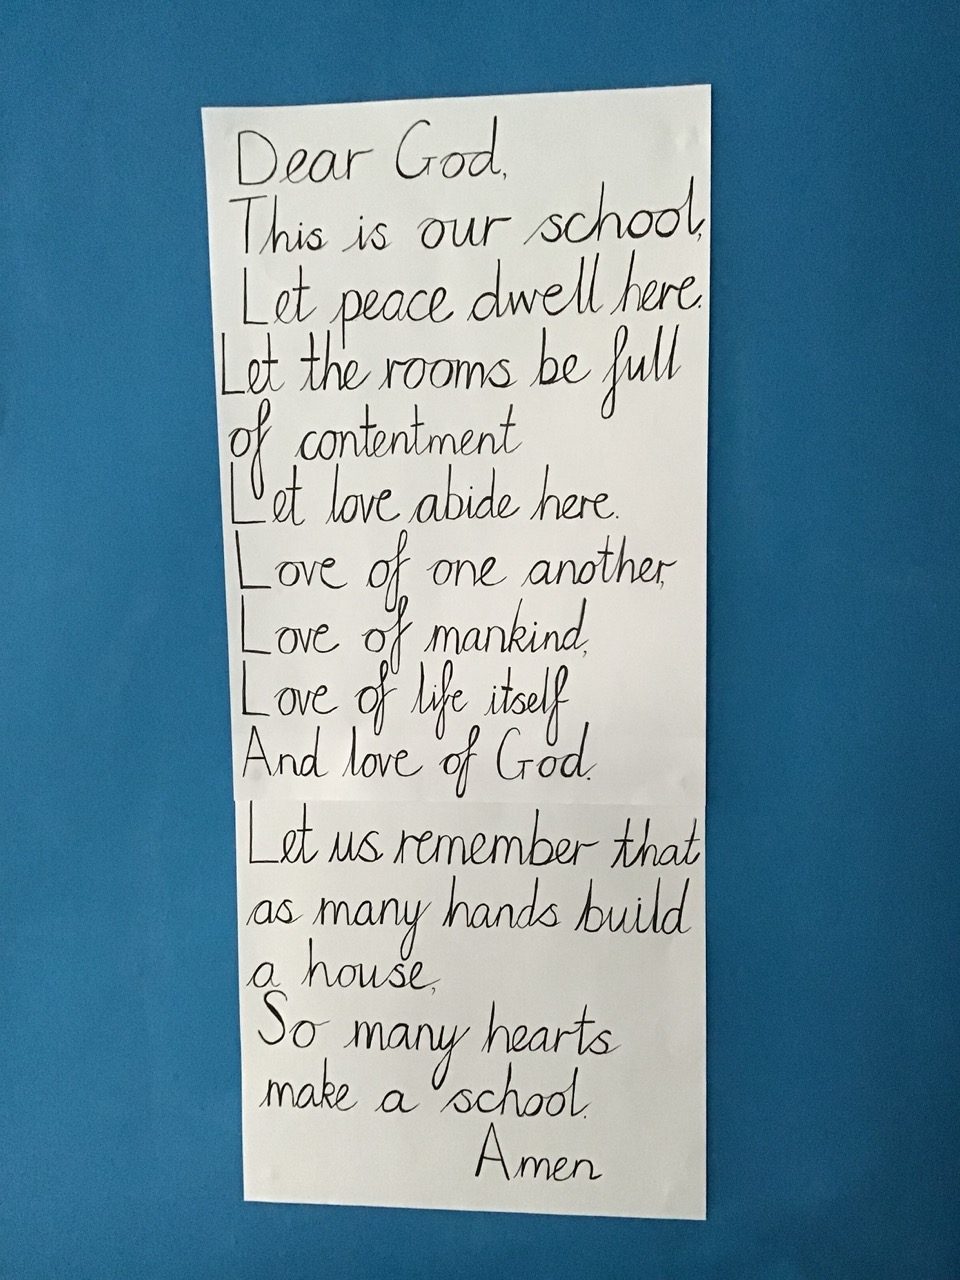 Dear God,
This is our school,
Let peace dwell here.
Let the rooms be full
of contentment
Let love abide here.
Love of one another,
Love of mankind,
Love of life itself
And love of God.
Let us remember that
as many hands build
a house,
So many hearts
make a school.
Amen